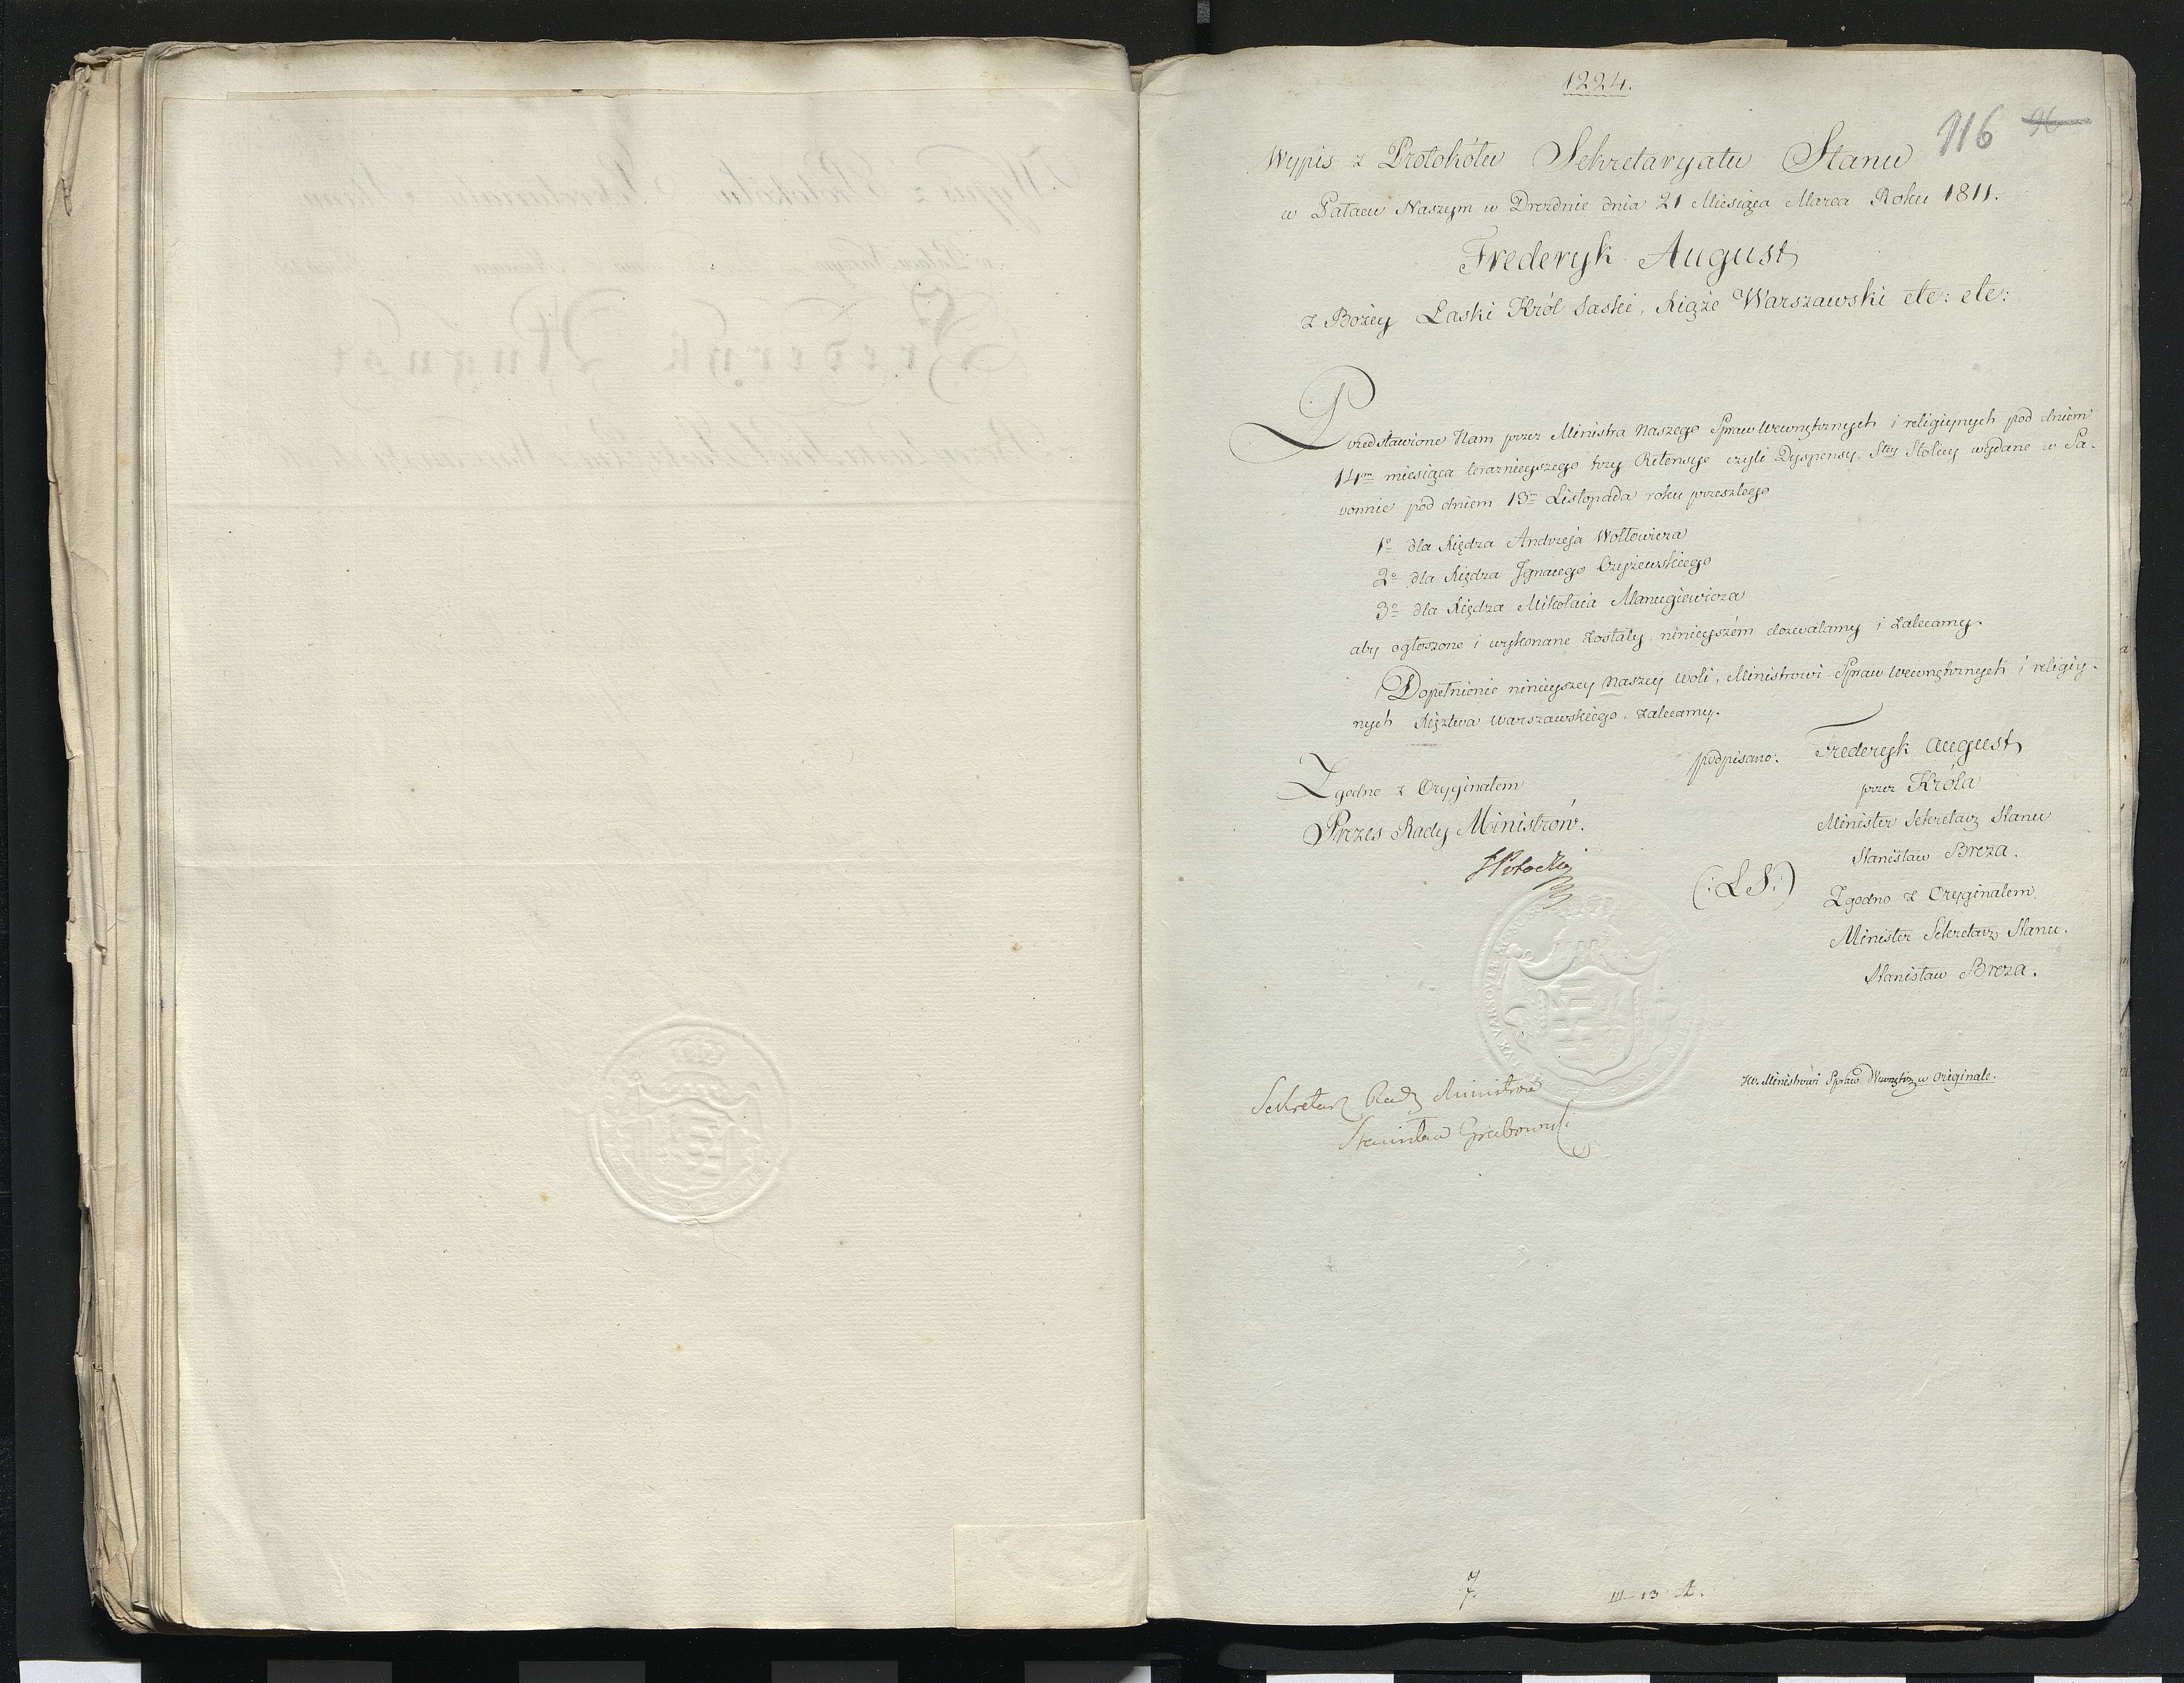 1224.
116 96
Wypis z Protokółu Sekretaryatu Stanu
w Pałacu Naszym w Dreźnie dnia 21 Miesiąca Marca Roku 1811.
Frederyk August
z Bożey Łaski Król Saski, Xiąże Warszawski etc: etc:
Przedstawione Nam przez Ministra Naszego Spraw Wewnętrznych i religiynych pod dniem
14m miesiąca teraznieyszego trzy Retensye czyli Dyspensy Stey Stolicy wydane w Sa-
vonnie pod dniem 19m Listopada roku przeszłego
1o dla Xiędza Andrzeja Wołłowicza
2o dla Xiędza Ignacego Czyżewskiego
3o dla Xiędza Mikołaia Manugiewicza
aby ogłoszone i wykonane zostały, ninieyszém dozwalamy i zalecamy.
Dopełnienie ninieyszey Naszey woli, Ministrowi Spraw Wewnętrznych i religiy-
nych Xięztwa Warszawskiego, zalecamy.
podpisano: Frederyk August
przez Króla
Minister Sekretarz Stanu
Stanisław Breza.
(:LS:)
Zgodno z Oryginałem
Minister Sekretarz Stanu.
Stanisław Breza.
Zgodno z Oryginałem
Prezes Rady Ministrów.
SPotocki
Sekretarz Rady Ministrów
Stanisław Grabowski
Ministrowi Spraw Wewnętrz w Originale.
7.
III-13 A.